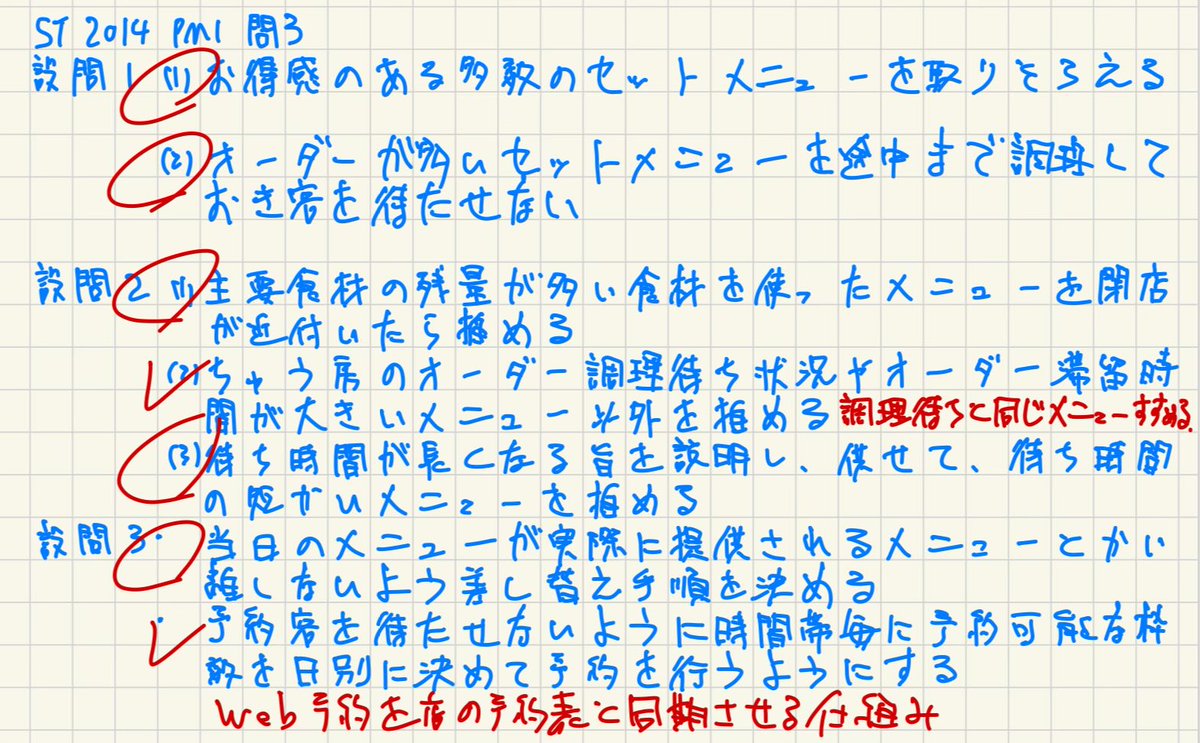 ST 2014 PM1 問3
設問1 (1) お得感のある多数のセットメニューを取りそろえる
(2) オーダーが多いセットメニューを途中まで調理して
おき客を待たせない
設問2 (1) 主要食材の残量が多い食材を使ったメニューを閉店
が近付いたら推める
(2) ちゅう房のオーダー調理待ち状況やオーダー滞留時
間が大きいメニュー以外を推める 調理待ちと同じメニューすすめる.
(3) 待ち時間が長くなる旨を説明し、供せて、待ち時間
の短かいメニューを推める
設問3・ 当日のメニューが実際に提供されるメニューとかい
離しないよう差し替え手順を決める
・ 予約客を待たせないように時間帯毎に予約可能な枠
数を日別に決めて予約を行うようにする
Web予約を店の予約表と同期させる仕組み